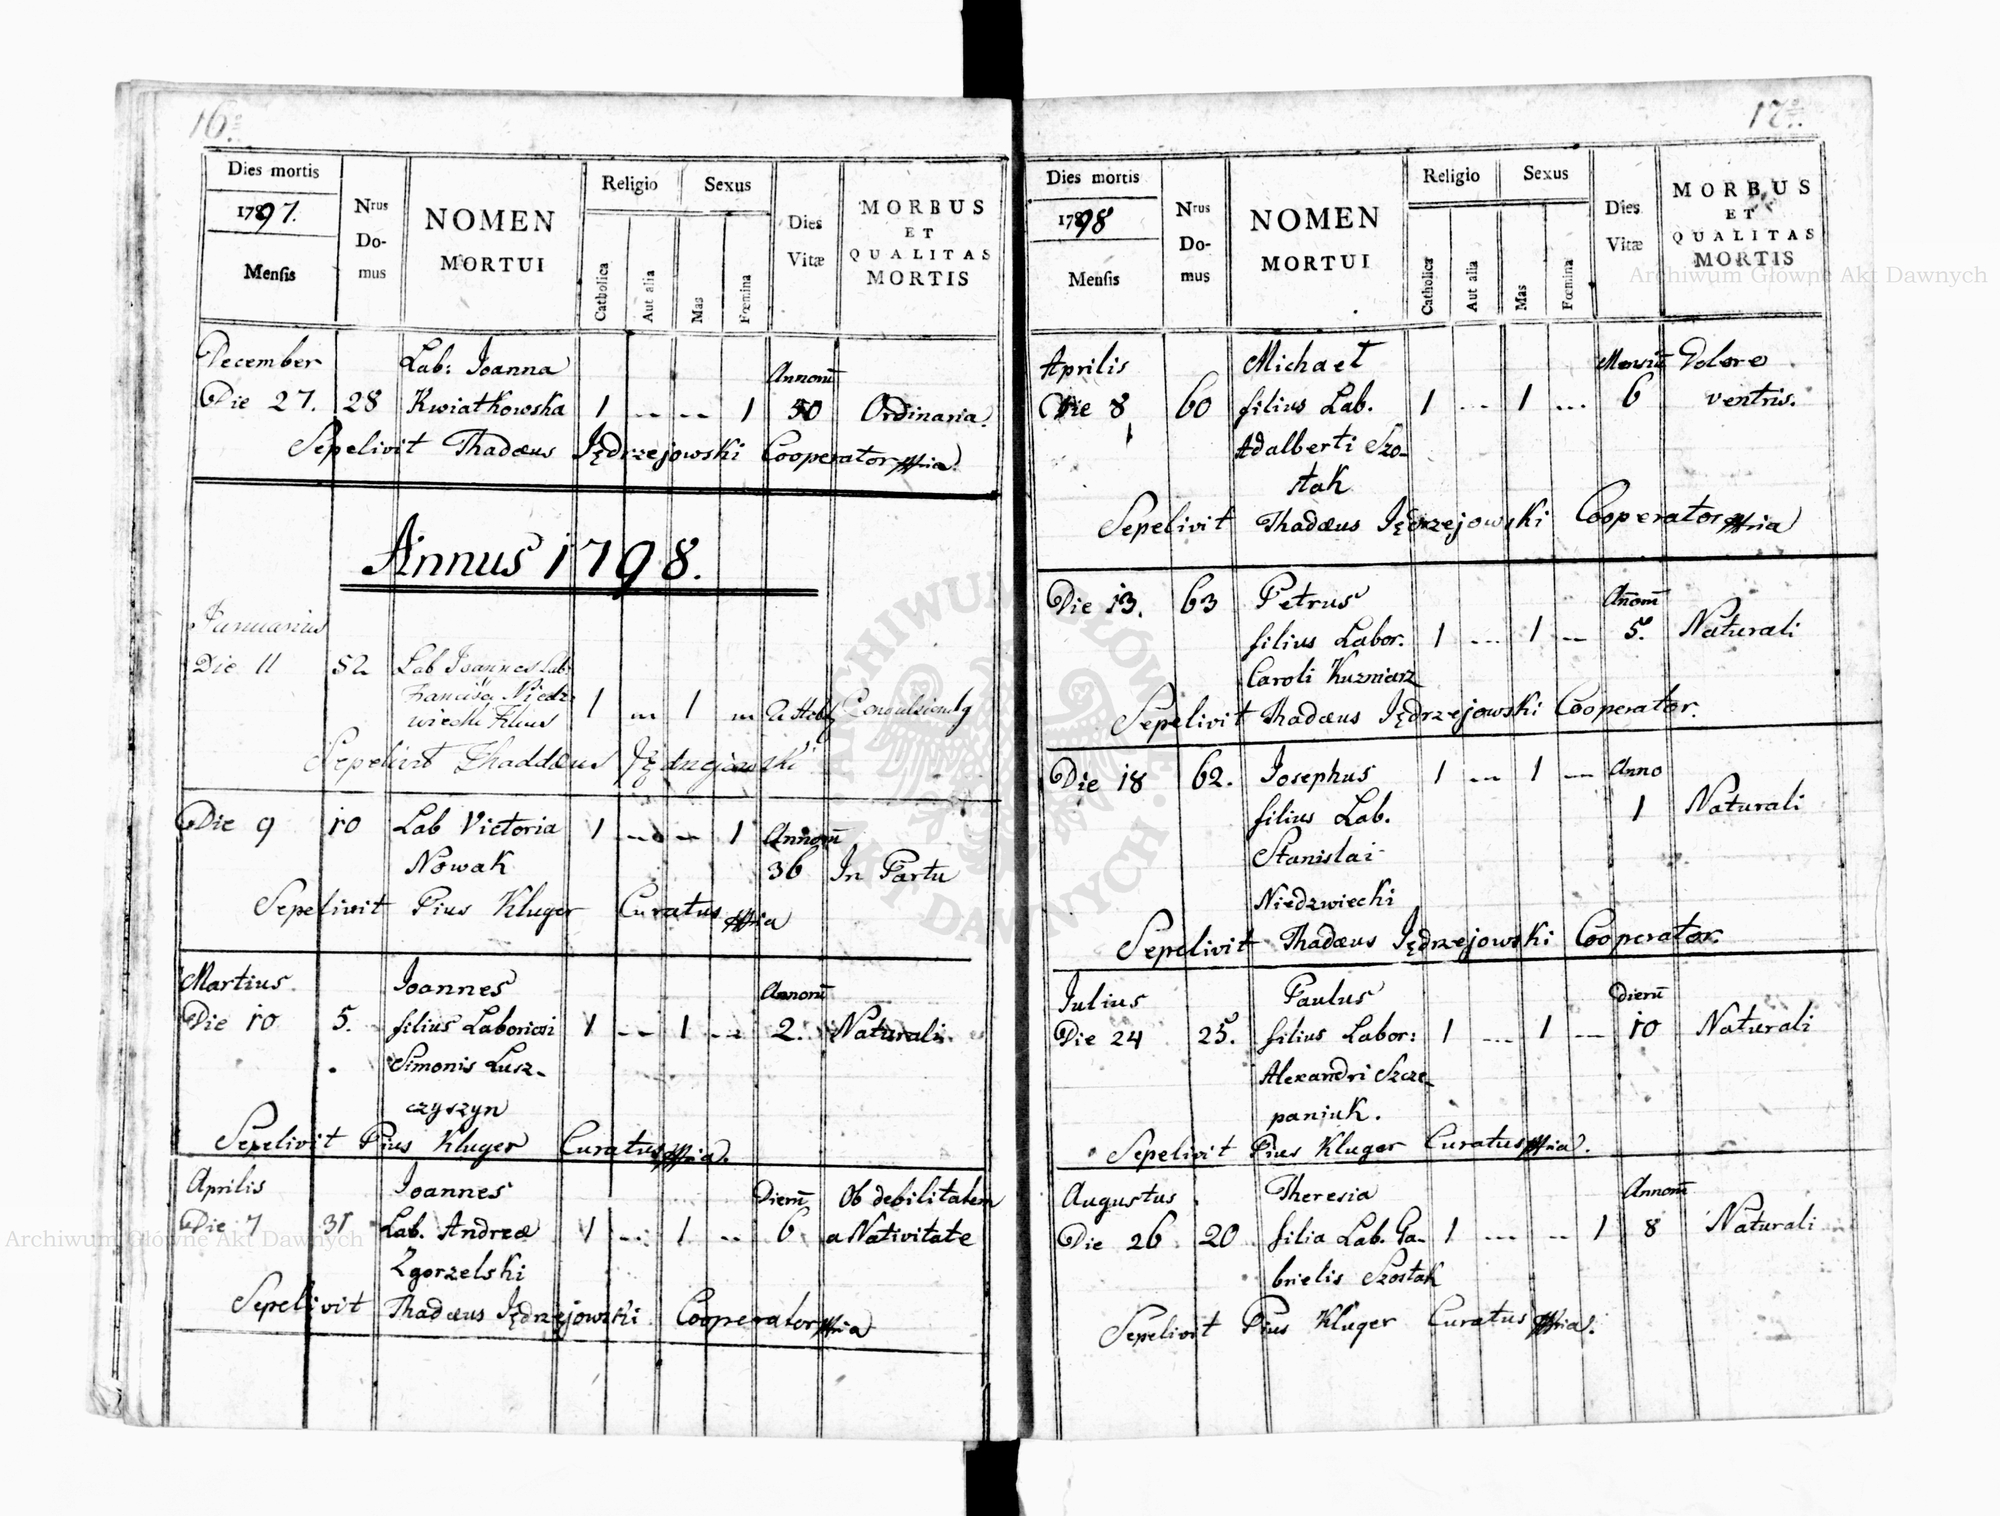 16
Dies mortis
1797.
Mensis
Nrus Do-mus
NOMEN
MORTUI
Religio
Catholica
Aut alia
Sexus
Mas
Fœmina
Dies
Vitæ
MORBUS
ET
QUALITAS
MORTIS
December Lab: Joanna Annorū
Die 27. 28 Kwiatkowska 1 -- -- 1 50 Ordinaria.
Sepelivit Thadæus Jędrzejowski Cooperator mpria
Annus 1798.
Januarius
Die 11 52 Lab Joannes Lab.
Francisci Niedz-
wiecki filius 1 -- 1 --
Sepelivit Thaddæus Jędrzejowski
Die 9 10 Lab Victoria 1 -- -- 1 Annorū
Nowak 36 In Partu
Sepelivit Pius Kluger Curatus mpria
Martius Joannes Annorū
Die 10 5. filius Laboriosi 1 -- 1 -- 2. Naturali
Simonis Lusz-
czyszyn
Sepelivit Pius Kluger Curatus mpria.
Aprilis Joannes Dierū Ob debilitatem
Die 7 31 Lab. Andreæ 1 -- 1 -- 6 a Nativitate
Zgorzelski
Sepelivit Thadæus Jędrzejowski Cooperator mpria
17
Dies mortis
1798
Mensis
Nrus Do-mus
NOMEN
MORTUI
Religio
Catholica
Aut alia
Sexus
Mas
Fœmina
Dies
Vitæ
MORBUS
ET
QUALITAS
MORTIS
Aprilis Michael Mensiū Dolore
Die 8 60 filius Lab. 1 -- 1 -- 6 ventris.
Adalberti Szo-
stak
Sepelivit Thadæus Jędrzejowski Cooperator mpria
Die 13. 63 Petrus Annorū
filius Labor. 1 -- 1 -- 5. Naturali
Caroli Kuzniarz
Sepelivit Thadæus Jędrzejowski Cooperator.
Die 18 62. Josephus 1 -- 1 -- Anno
filius Lab. 1 Naturali
Stanislai
Niedzwiecki
Sepelivit Thadæus Jędrzejowski Cooperator.
Julius Paulus dierū
Die 24 25. filius Labor: 1 -- 1 -- 10 Naturali
Alexandri Szcze-
paniuk.
Sepelivit Pius Kluger Curatus mpria.
Augustus Theresia Annorū
Die 26 20 filia Lab. Ga- 1 -- -- 1 8 Naturali
brielis Szostak
Sepelivit Pius Kluger Curatus mpria.
Archiwum Główne Akt Dawnych
Archiwum Główne Akt Dawnych
ARCHIWUM GŁÓWNE AKT DAWNYCH